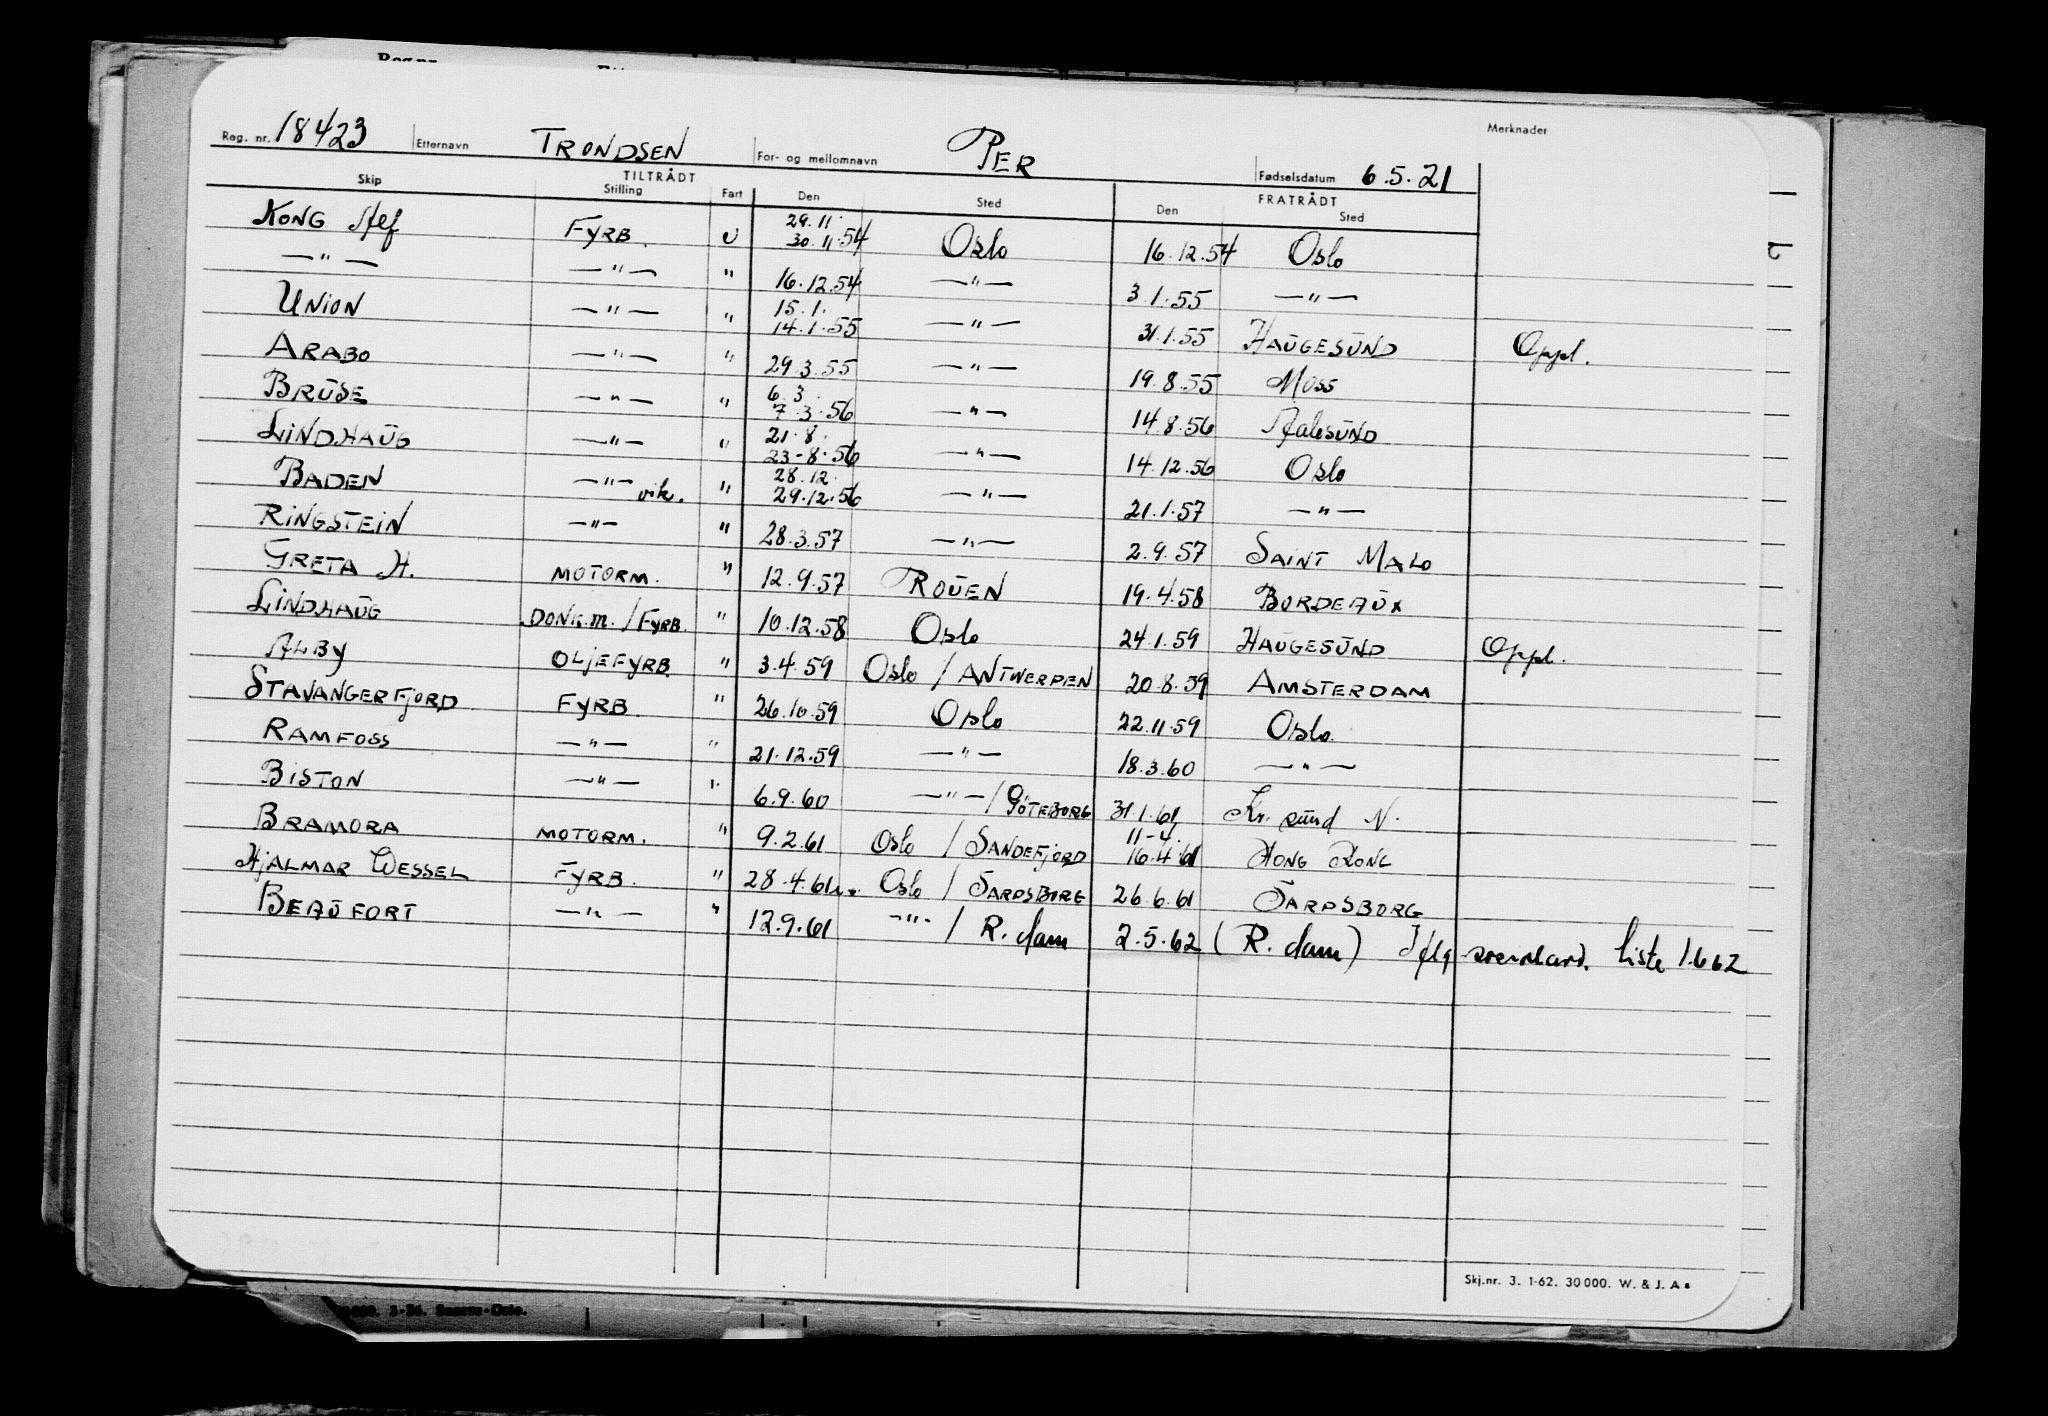 Reg. nr. 18423 Etternavn TRONDSEN For- og mellomnavn PER Fødselsdatum 6.5.21 Merknader
TILTRÅDT FRATRÅDT
Skip Stilling Fart Den Sted Den Sted
KONG Alf FYRB. U 29.11. 30.11.54 Oslo 16.12.54 Oslo
—"— —"— " 16.12.54 —"— 3.1.55 —"—
UNION —"— " 15.1. 14.1.55 —"— 31.1.55 HAUGESUND Oppl.
ARABO —"— " 29.3.55 —"— 19.8.55 Moss
BRUSE —"— " 6.3. 7.3.56 —"— 14.8.56 AalesUND
LINDHAUG —"— " 21.8. 23-8.56 —"— 14.12.56 Oslo
BADEN —"— vik. " 28.12. 29.12.56 —"— 21.1.57 —"—
RINGSTEIN —"— " 28.3.57 —"— 2.9.57 SAINT MALO
GRETA H. MOTORM. " 12.9.57 ROUEN 19.4.58 BORDEAUX
LINDHAUG DONK.M./FYRB. " 10.12.58 Oslo 24.1.59 HAUGESUND Oppl.
ALBY OLJEFYRB. " 3.4.59 Oslo / ANTWERPEN 20.8.59 AMSTERDAM
STAVANGERFJORD FYRB. " 26.10.59 Oslo 22.11.59 Oslo.
RAMFOSS —"— " 21.12.59 —"— 18.3.60 —"—
BISTON —"— " 6.9.60 —"— / GÖTEBORG 31.1.61 Kr. sund N.
BRAMORA MOTORM. " 9.2.61 Oslo / SANDEFJORD 11-4. 16.4.61 HONG KONG
HJALMAR WESSEL FYRB. " 28.4.61 Oslo / SARPSBORG 26.6.61 SARPSBORG
BEAUFORT —"— " 12.9.61 —"— / R.dam 2.5.62 (R.dam) Iflg liste 1.6.62
Skj.nr. 3. 1-62. 30000. W. & J. A s
3-56.